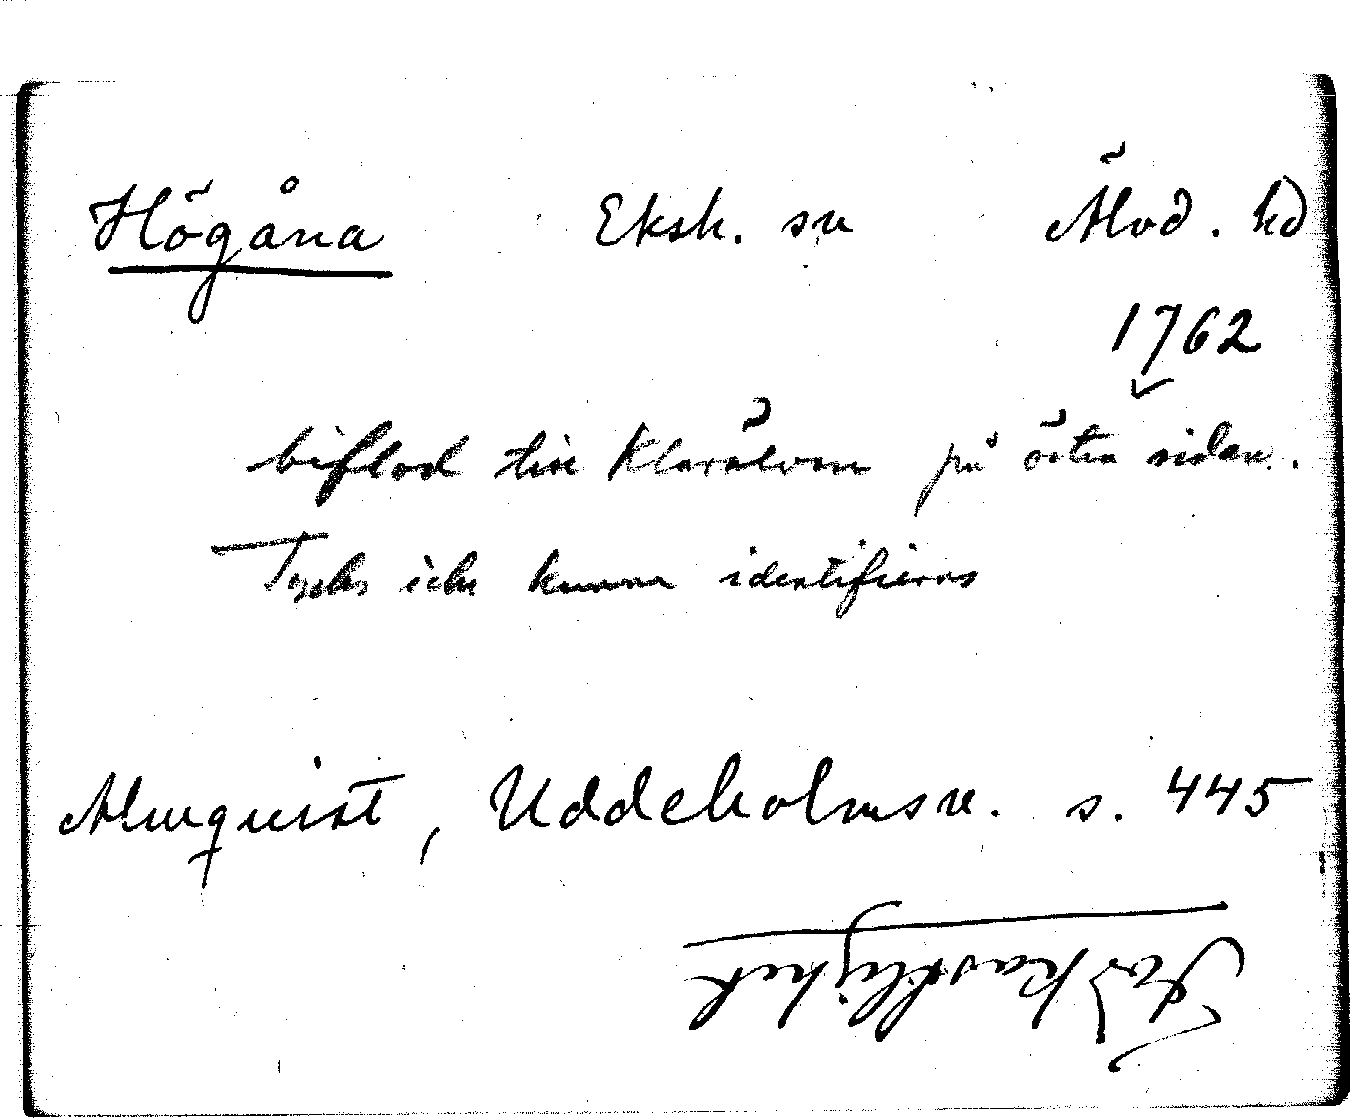 Högåna Eksh. sn Älvd. hd
1762
biflod till Klarälven på östra sidan.
Torde icke kunna identifieras
Almquist, Uddeholmsv. s. 445